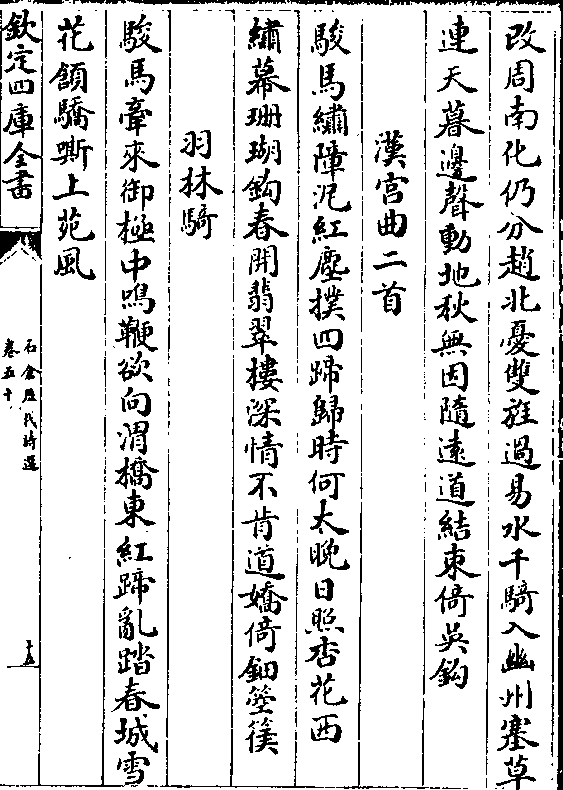 改周南化仍分趙北憂雙旌過易水千騎入幽州塞草
連天暮邊聲動地秋無因隨遠道結束倚吳鈎
漢宮曲二首
駿馬繡障泥紅塵撲四蹄歸時何太晚日照杏花西
繡幕珊瑚鈎春開翡翠樓深情不肯道嬌倚鈿箜篌
羽林騎
駿馬牽來御極中鳴鞭欲向渭橋東紅蹄亂踏春城雪
花頷驕嘶上苑風
欽定四庫全書
石倉歷代詩選
卷五十
十五